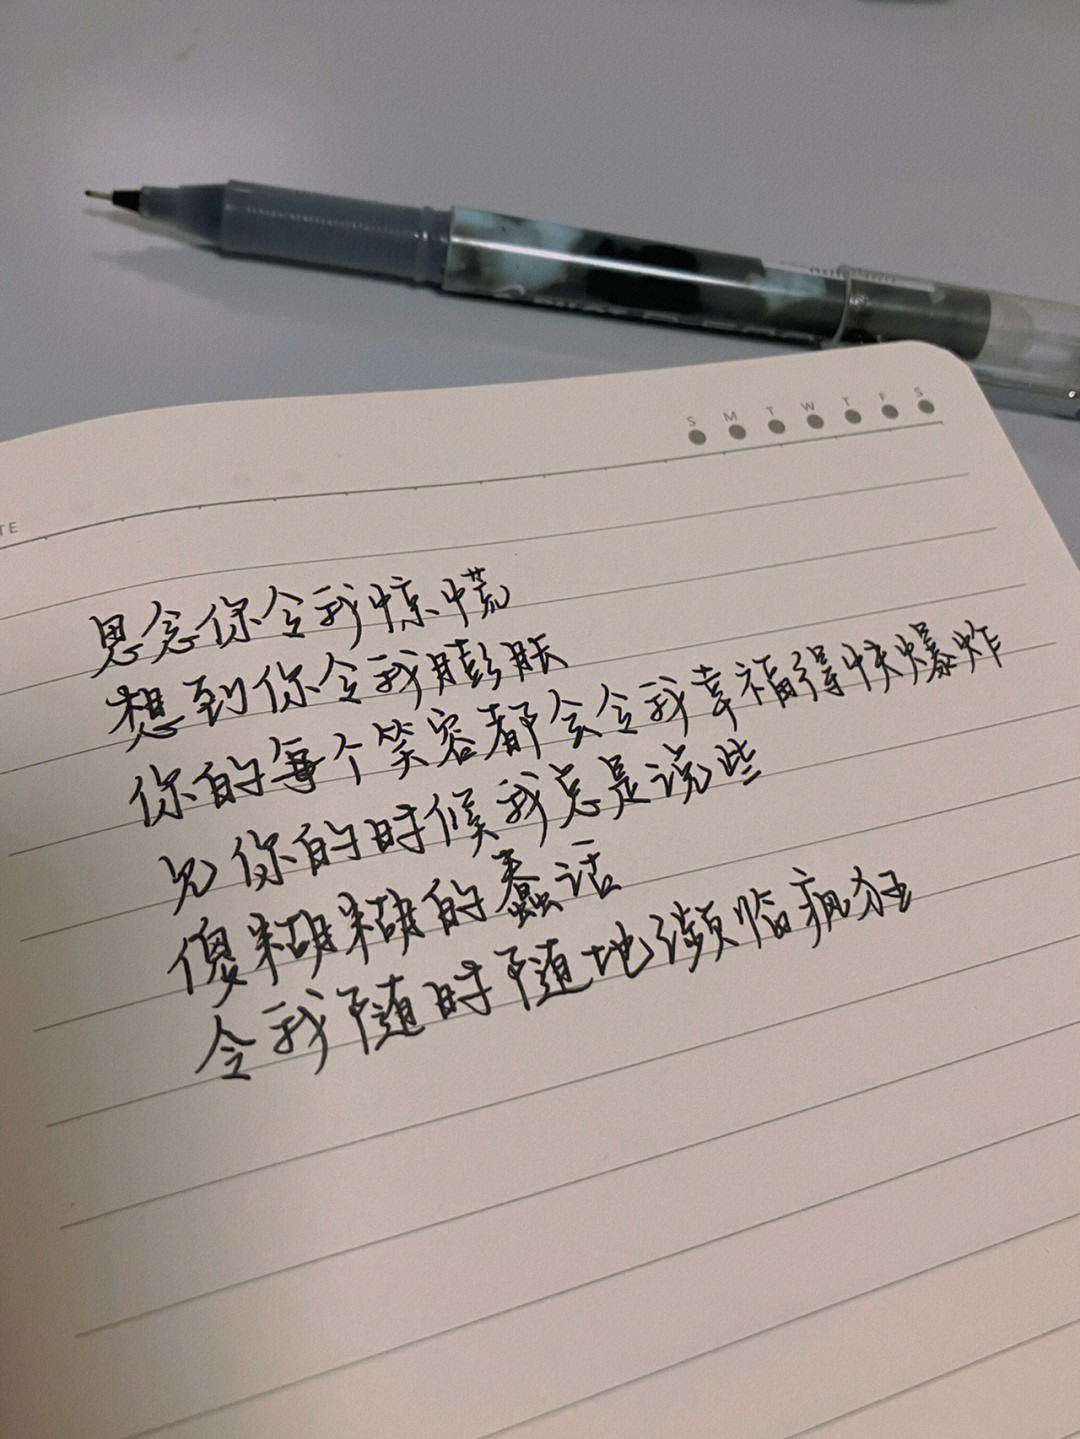 S M T W T F S
TE
思念你令我惊慌
想到你令我膨胀
你的每个笑容都会令我幸福得快爆炸
见你的时候我总是说些
傻糊糊的蠢话
令我随时随地濒临疯狂